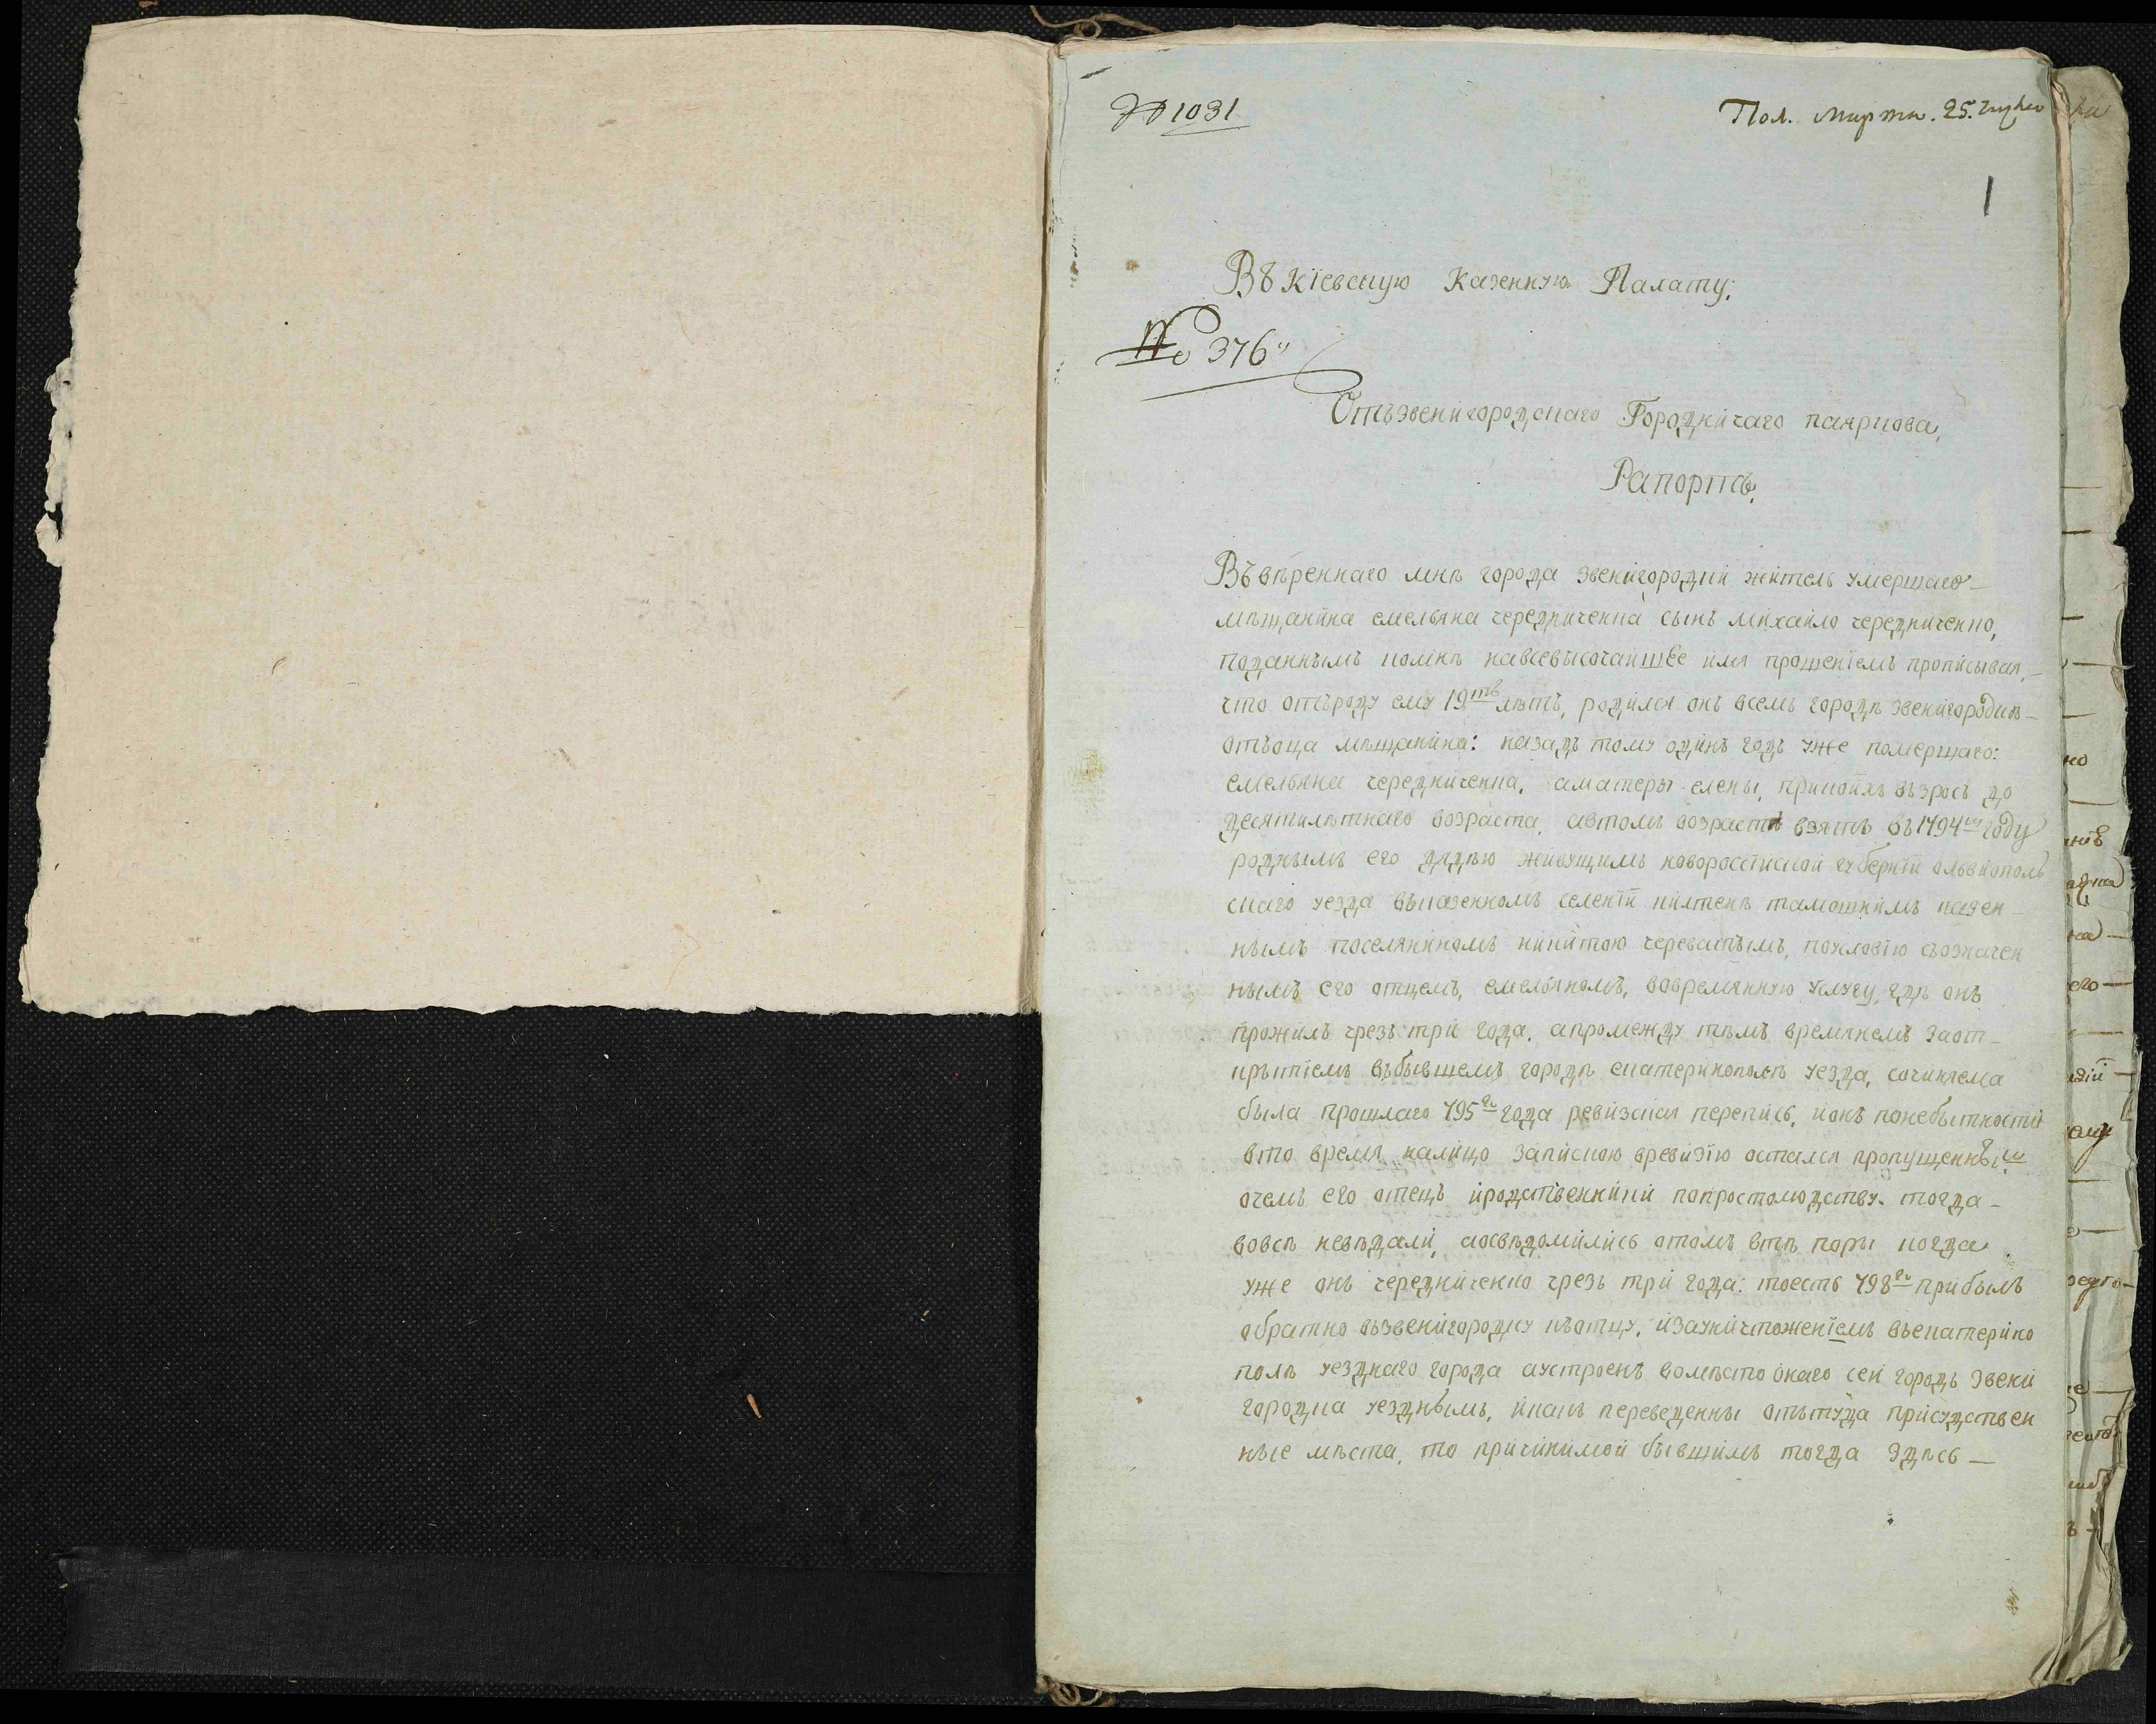 № 1031
Пол. марта. 25. 
1
Въ Кїевскую Казенную Палату.
№ 376
Отъ звенигородскаго Городничаго паяркова,
Рапортъ.
Въ вѣреннаго мнѣ города звенигородки житель умершаго
мѣщанина емельяна чередниченка сынъ михайло чередниченко,
поданнымъ комнѣ навсевысочайшее имя прошенїемъ прописывая,
что отъроду ему 19ть лѣтъ, родился онъ всемъ городѣ звенигородкѣ
отъоца мѣщанина: назадъ тому одинъ годъ уже помершаго:
емельяна чередниченка, аматеры елены, прикоихъ възросъ до
десятилѣтнаго возраста, автомъ возрастѣ взятъ въ 1794м году
роднымъ его дядкю живущимъ новороссїиской губернїи ольвиополь
скаго уезда въказенномъ селенїи тамошнимъ казен
нымъ поселяниномъ никитою череватымъ, поусловїю съозначен
нымъ его отцемъ, емельяномъ, вовремянную услугу, гдѣ онъ
прожилъ чрезъ три года, апромежду тѣмъ времянемъ заот
крытїемъ въбывшемъ городѣ екатеринополѣ уезда, сочиняема
была прошлаго 795го года ревизская перепись, ионъ понебытности
вто время налицо запискою вревизїю остался пропущеннымъ
очемъ его отецъ иродственники попростолюдству тогда
вовсѣ невѣдали, аосвѣдомились отомъ втѣ поры когда
уже онъ чередниченко чрезъ три года: тоесть 798го прибылъ
обратно възвенигородку къотцу, изауничтоженїемъ въекатерино
полѣ уезднаго города аустроенъ вомѣсто онаго сей городъ звени
городка уезднымъ, икакъ переведенны отътуда присудствен
ные мѣста, то причинимой бывшимъ тогда здѣсь